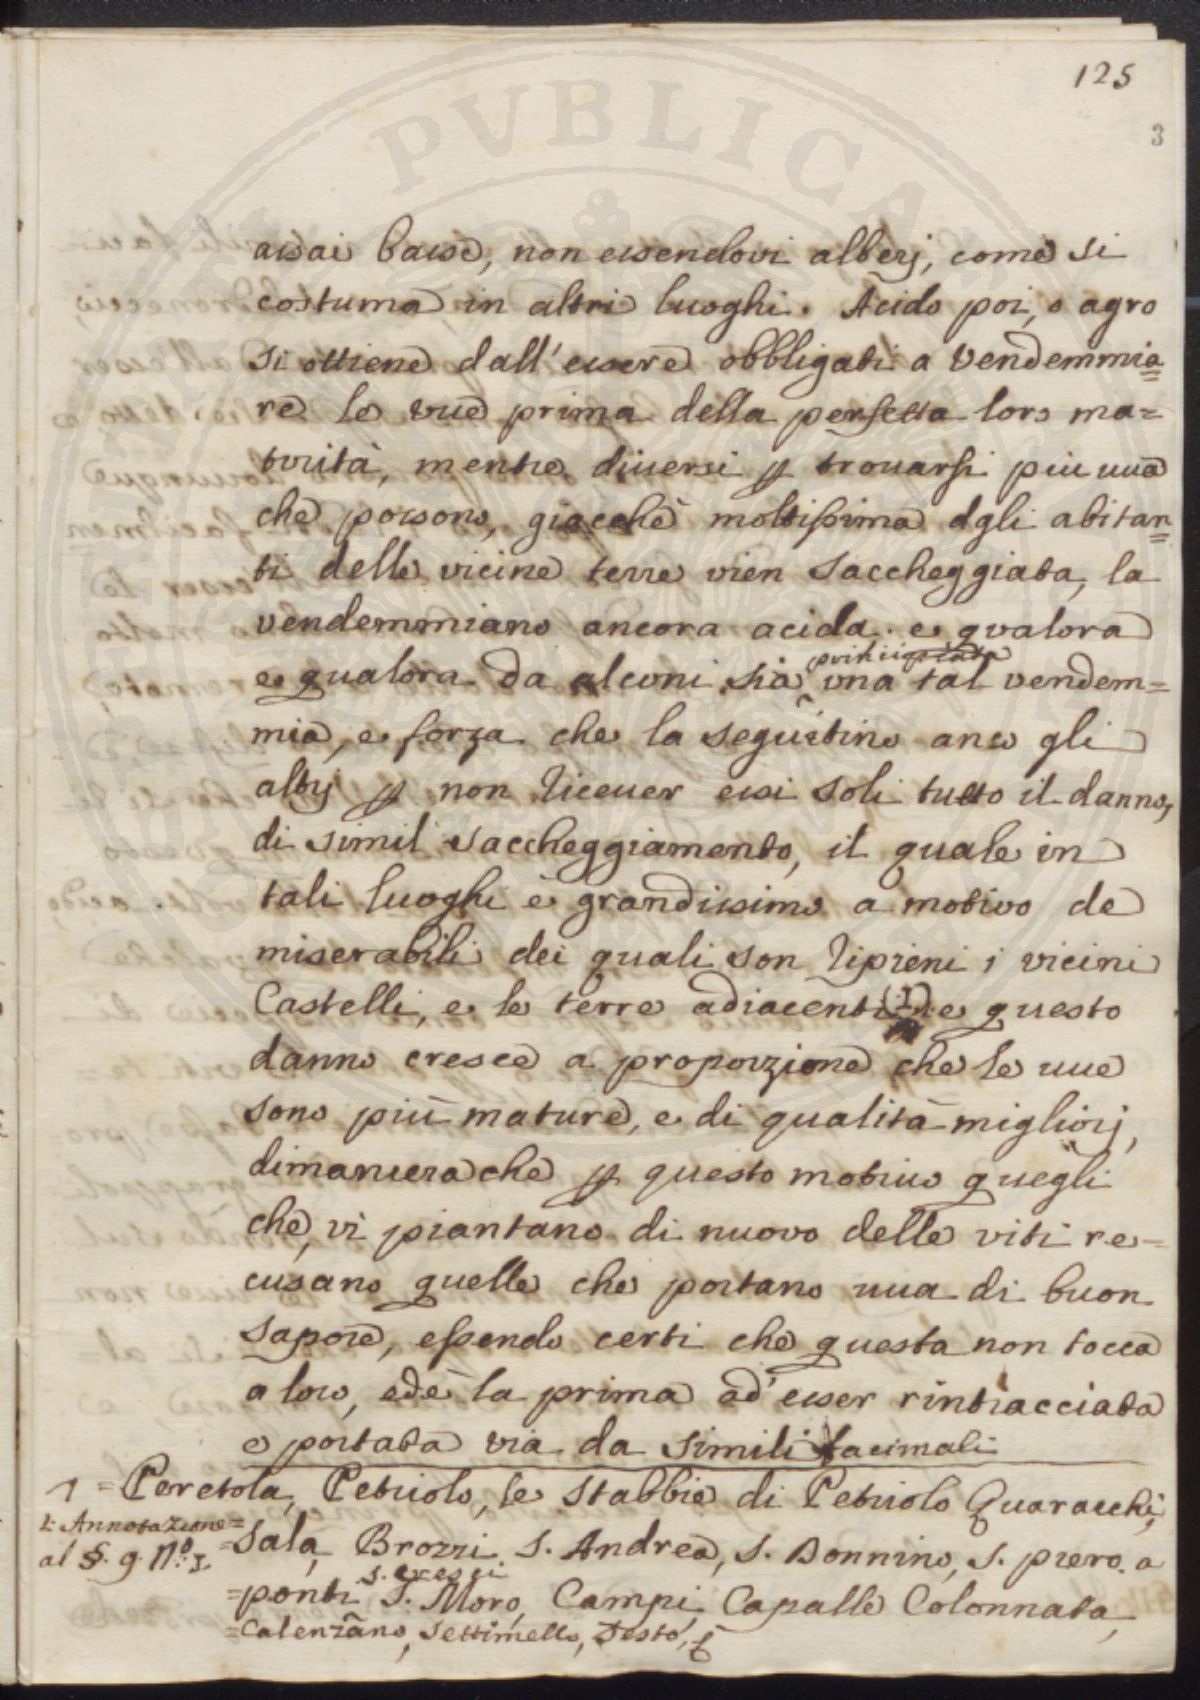 125
3
assai basse, non essendovi alberj, come si
costuma in altri luoghi. Acido poi, o agro
si ottiene dall'essere obbligati a vendemmia=
re le vue prima della perfetta loro ma=
turità, mentre diversi p trouarsi piu uua
che possono, giacchè moltissima dgli abitan=
ti delle vicine terre vien saccheggiata, la
vendemmiano ancora acida. e qualora
principiata
e qualora da alcuni sia una tal vendem=
mia, e forza che la seguitino anco gli
altrj p non riceuer essi soli tutto il danno,
di simil saccheggiamento, il quale in
tali luoghi è grandissimo a motivo de
miserabili dei quali son ripieni i vicini
Castelli, e le terre adiacenti (1) e questo
danno cresce a proporzione che le uue
sono più mature, e di qualità migliorj,
dimanierache p questo motiuo quegli
che, vi piantano di nuovo delle viti re=
cusano quelle che portano uua di buon
sapore, essendo certi che questa non tocca
a loro, ed è la prima ad' esser rintracciata
e portata via da simili sacimali
1 = Peretola, Petriolo, le Stabbie di Petriolo Quaracchi,
1: Annotazione=
=Sala, Brozzi S. Andrea, S. Donnino, S. piero a
al §. 9 N.o 1.
S. Cresci
=ponti S. Moro, Campi Capalle Colonnata,
=Calenzano, Settimello, Sesto,
PVBLICA